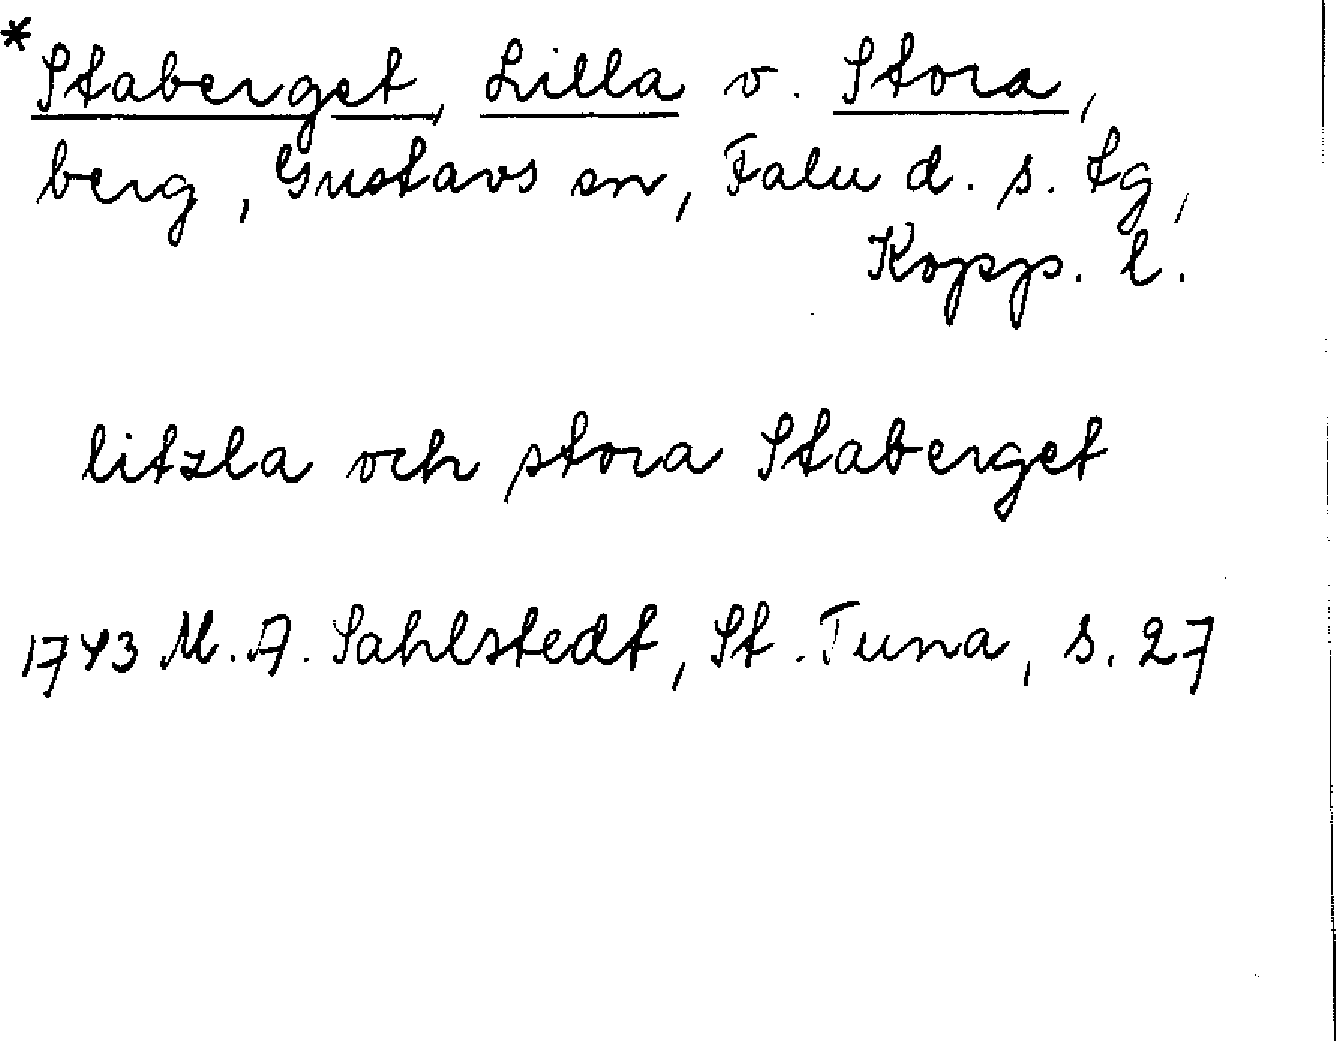 *Staberget, Lilla o. Stora,
berg, Gustavs sn, Falu d. s. tg,
Kopp. l.
litzla och stora Staberget
1743 M.A. Sahlstedt, St. Tuna, s. 27